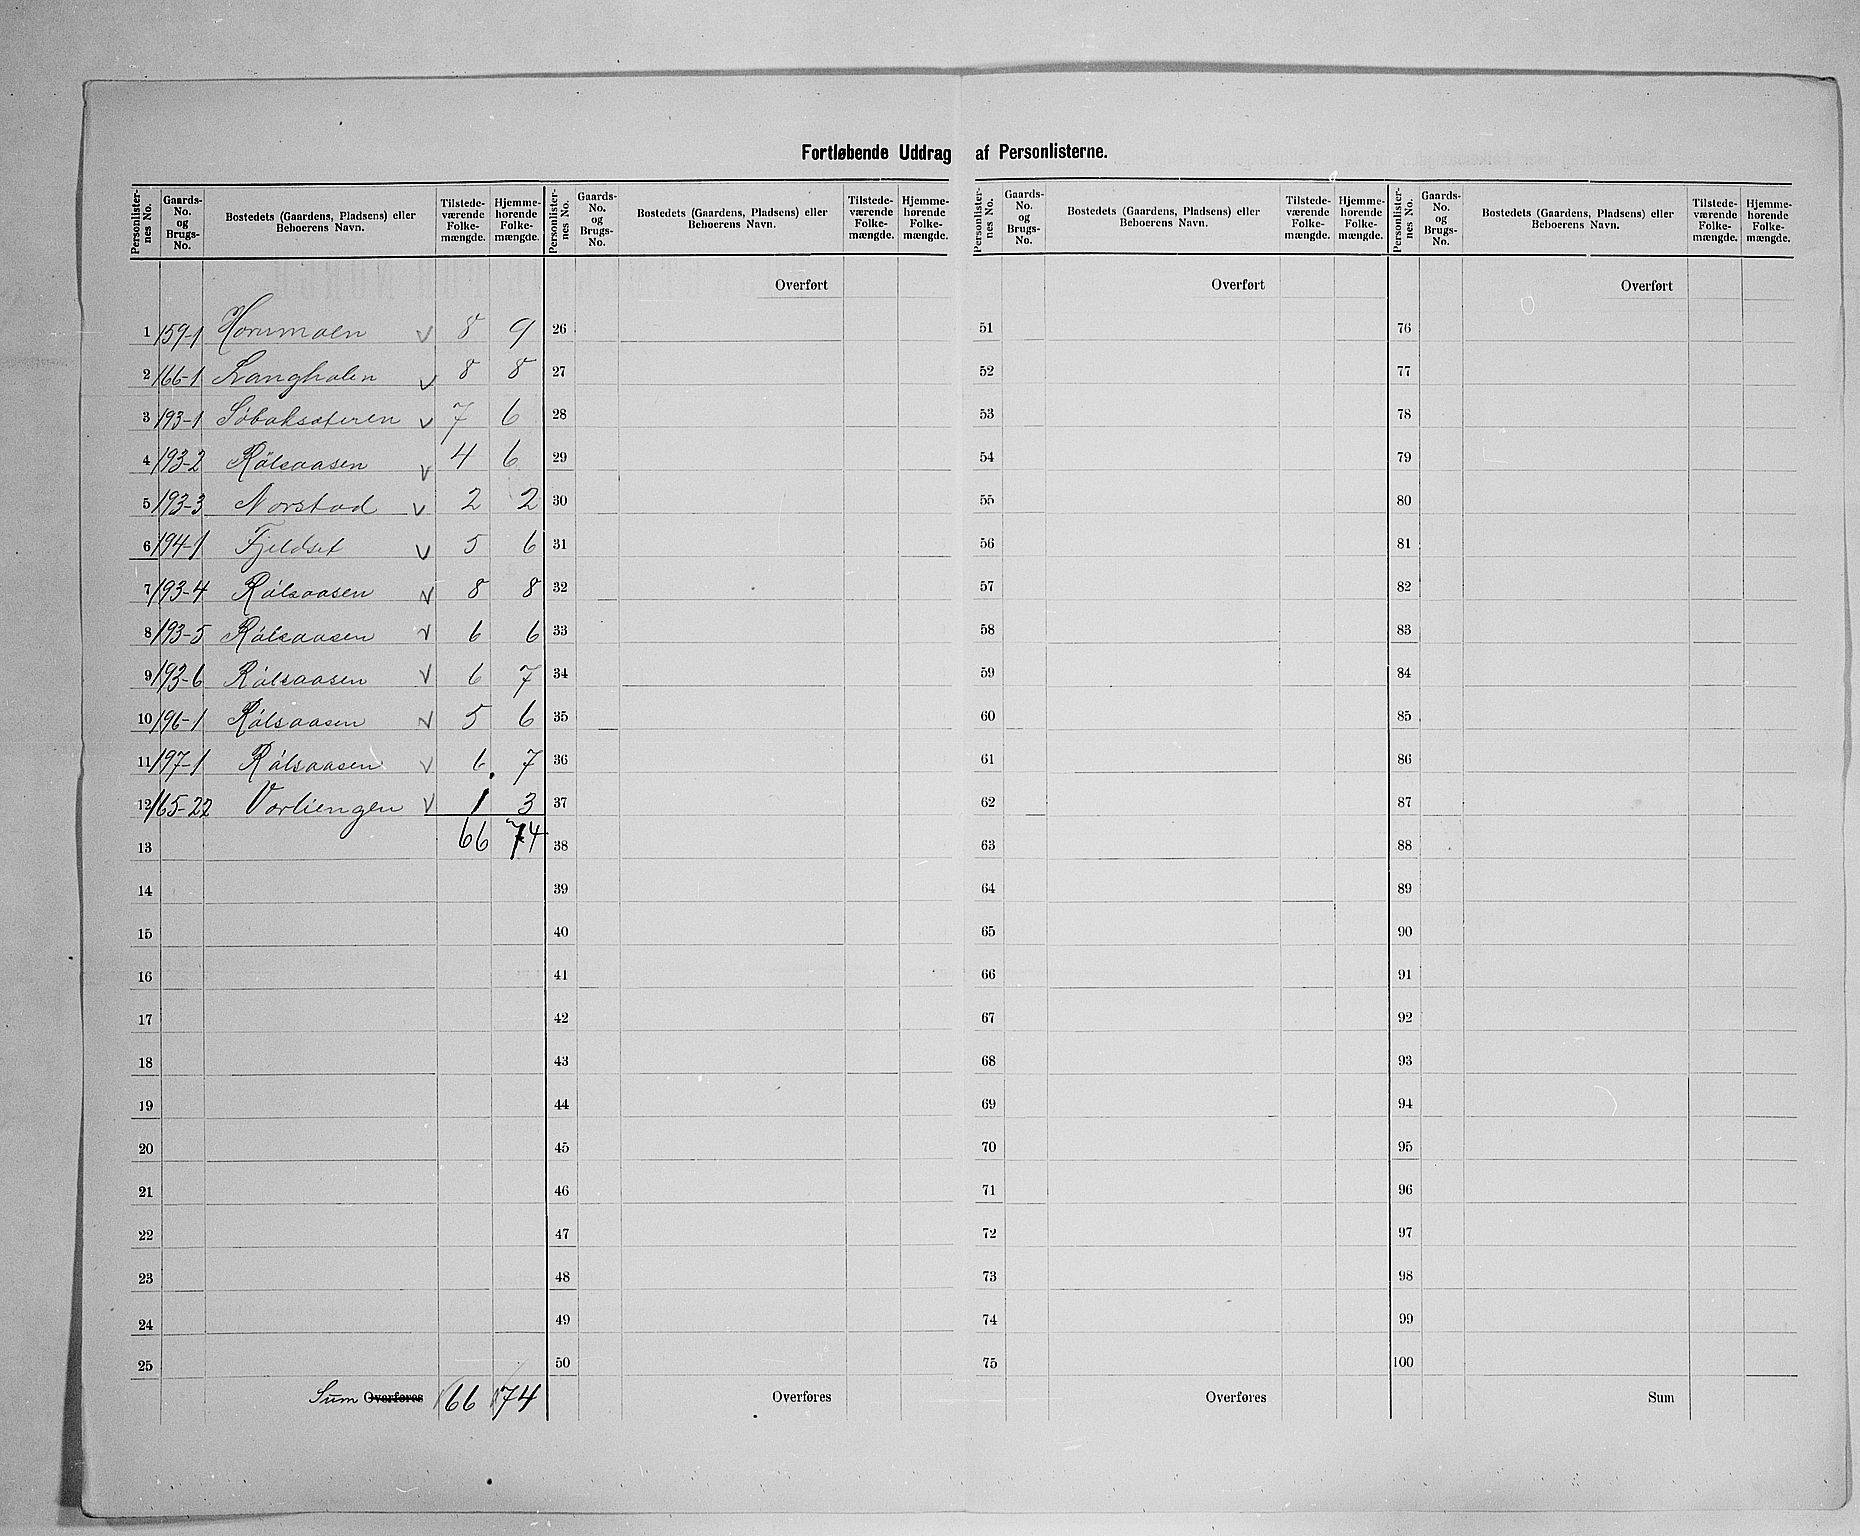 Fortløbende Uddrag af Personlisterne.
Personlister-nes No. Gaards-No. og Brugs-No. Bostedets (Gaardens, Pladsens) eller Beboerens Navn. Tilstede-værende Folke-mængde. Hjemme-hørende Folke-mængde. Personlister-nes No. Gaards-No. og Brugs-No. Bostedets (Gaardens, Pladsens) eller Beboerens Navn. Tilstede-værende Folke-mængde. Hjemme-hørende Folke-mængde. Personlister-nes No. Gaards-No. og Brugs-No. Bostedets (Gaardens, Pladsens) eller Beboerens Navn. Tilstede-værende Folke-mængde. Hjemme-hørende Folke-mængde. Personlister-nes No. Gaards-No. og Brugs-No. Bostedets (Gaardens, Pladsens) eller Beboerens Navn. Tilstede-værende Folke-mængde. Hjemme-hørende Folke-mængde.
Overført Overført Overført
1 159-1 Hornmoen v 8 9 26 51 76
2 166-1 v 8 8 27 52 77
3 193-1 Søbaksæteren v 7 6 28 53 78
4 193-2 Rölsaasen v 4 6 29 54 79
5 193-3 Norstad v 2 2 30 55 80
6 194-1 Fjeldset v 5 6 31 56 81
7 193-4 Rólsaasen v 8 8 32 57 82
8 193-5 Rólsaasen v 6 6 33 58 83
9 193-6 Rólsaasen v 6 7 34 59 84
10 196-1 Rólsaasen v 5 6 35 60 85
11 197-1 Rólsaasen v 6 7 36 61 86
12 165-22 Vorliengen v 1 3 37 62 87
13 66 74 38 63 88
14 39 64 89
15 40 65 90
16 41 66 91
17 42 67 92
18 43 68 93
19 44 69 94
20 45 70 95
21 46 71 96
22 47 72 97
23 48 73 98
24 49 74 99
25 50 75 100
Sum Overføres 66 74 Overføres Overføres Sum